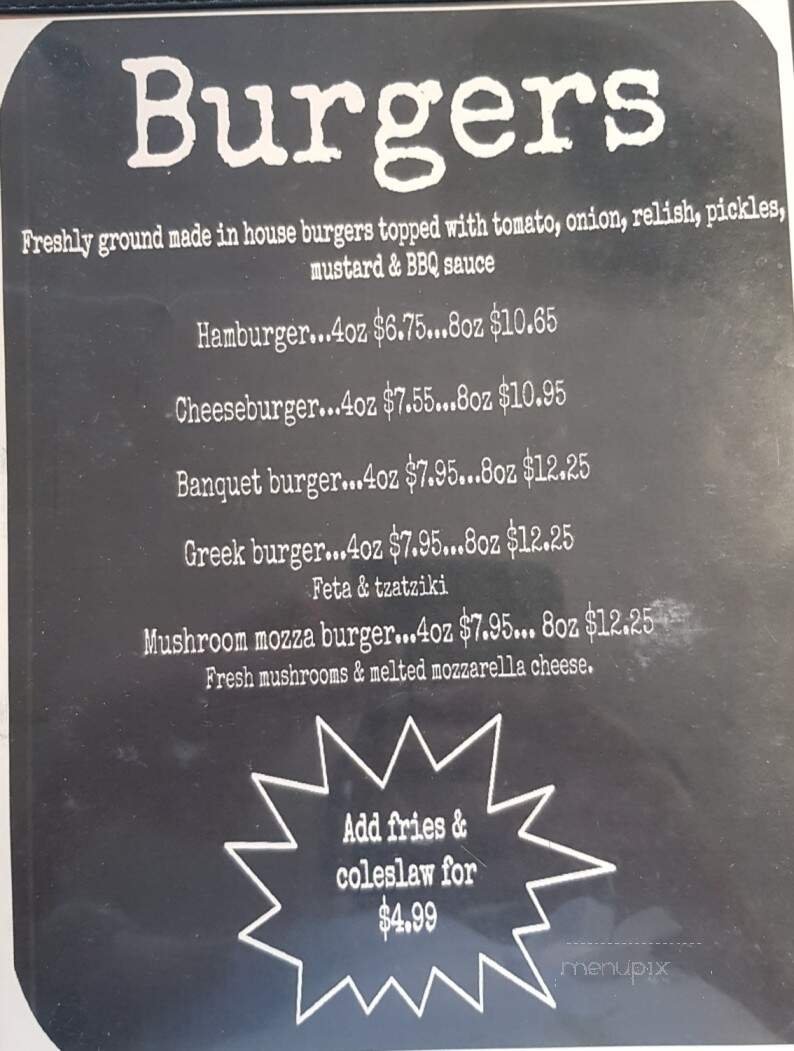 Burgers
Freshly ground made in house burgers topped with tomato, onion, relish, pickles,
mustard & BBQ sauce
Hamburger...4oz $6.75...8oz $10.65
Cheeseburger...4oz $7.55...8oz $10.95
Banquet burger...4oz $7.95...8oz $12.25
Greek burger...4oz $7.95...8oz $12.25
Feta & tzatziki
Mushroom mozza burger...4oz $7.95... 8oz $12.25
Fresh mushrooms & melted mozzarella cheese.
Add fries &
coleslaw for
$4.99
menupix